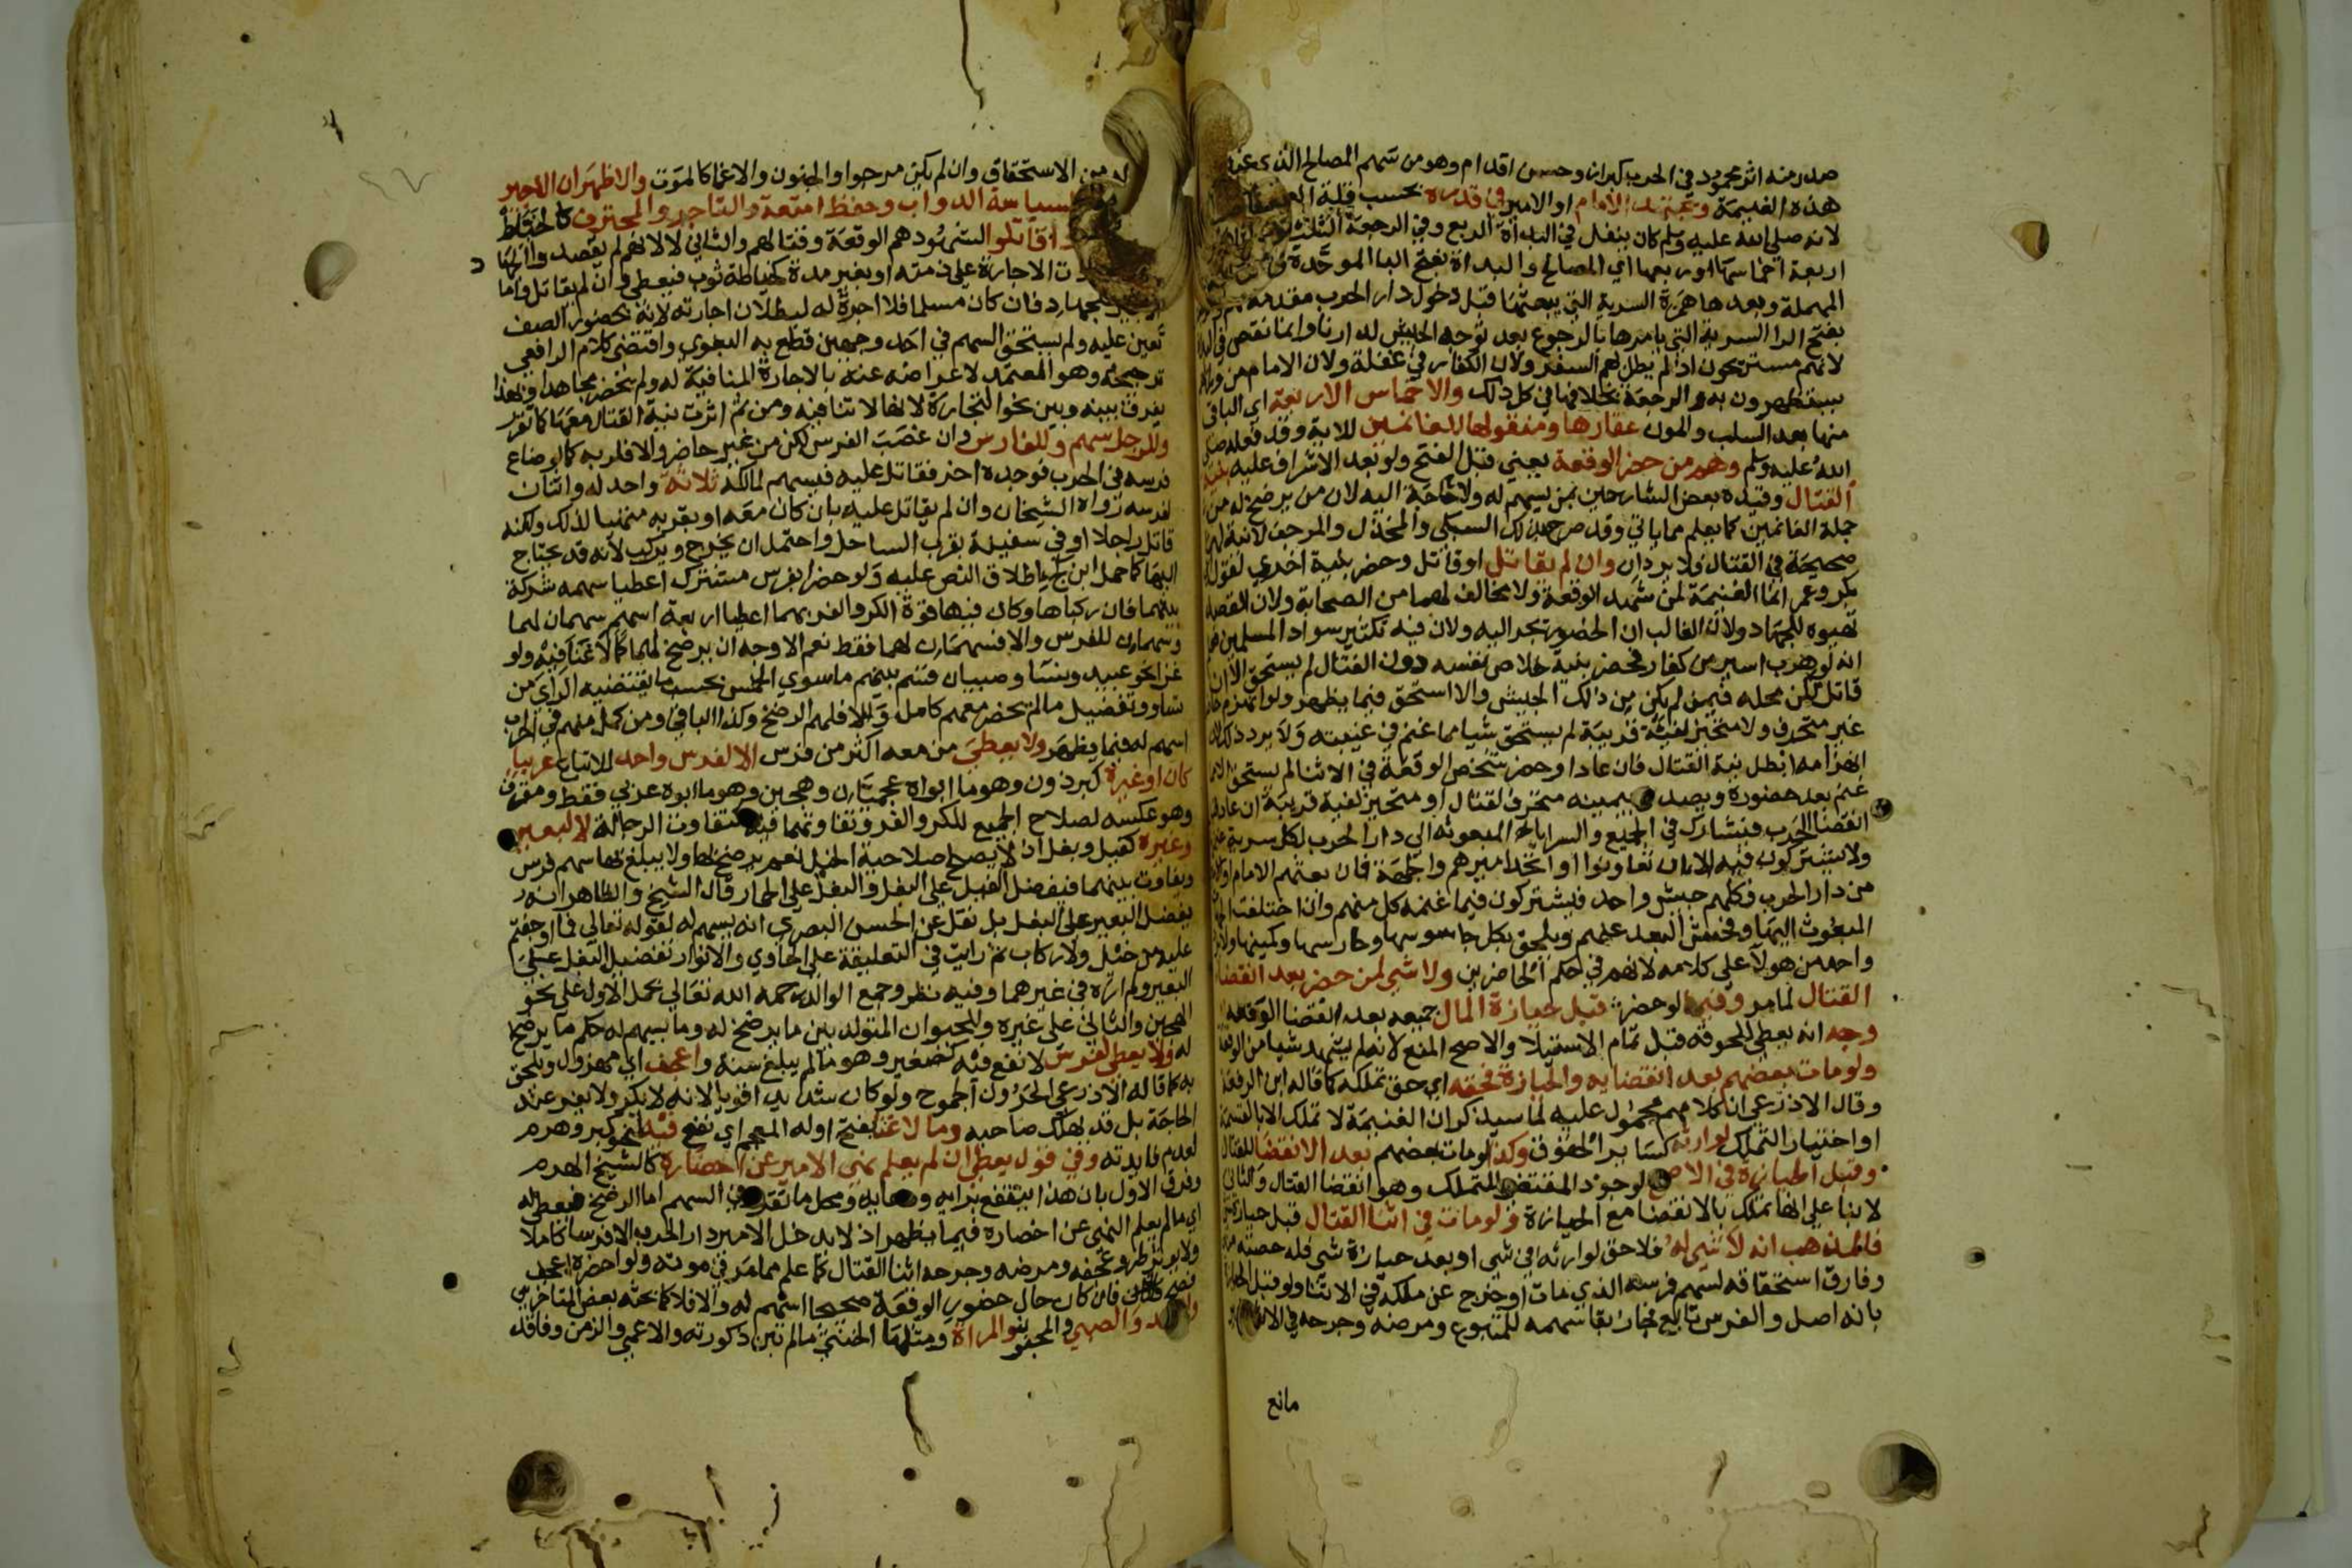 صدر منه اثر محمود في الحرب كبراز وحسن اقدام وهو من سهم المصالح الذي عند
هذه الغنيمة ويجتهد الامام او الامير في قدره بحسب قلة العمل
لانه صلي الله عليه وسلم كان ينفل في البداة الربع وفي الرجعة الثلث
اربعة اخماسها او ربعها اي المصالح والبداة بفتح البا الموحدة
المهملة وبعدها همزة السرية التي يبعثها قبل دخول دار الحرب مقدمة
بفتح الرا السرية التي يامرها بالرجوع بعد توجه الجيش لدارنا وانما نقص في البداة
لانهم مستريحون اذ لم يطل بهم السفر ولان الكفار في غفلة ولان الامام من ورائهم
يستظهرون به والرجعة بخلافها في كل ذلك والاخماس الاربعة اي الباقي
منها بعد السلب والمون عقارها ومنقولها للغانمين للاية وفعله صلي
الله عليه وسلم وهم من حضر الوقعة يعني قبل الفتح ولو بعد الاشراف عليه بنية
القتال وقيده بعض الشارحين بمن يسهم له ولا حاجة اليه لان من يرضخ له من
جملة الغانمين كما يعلم مما ياتي وقد صرح بذلك السبكي والمخذل والمرجف لانية لهما
صحيحة في القتال فلا يردان وان لم يقاتل او قاتل وحضر بنية اخري لقول ابي
بكر وعمر انما الغنيمة لمن شهد الوقعة ولا مخالف لهما من الصحابة ولان القصد
تهيوه للجهاد ولان الغالب ان الحضور يجر اليه ولان فيه تكثير سواد المسلمين
انه لو هرب اسير من كفار فحضر بنية خلاص نفسه دون القتال لم يستحق الا ان
قاتل لكن محله فيمن لم يكن من ذلك الجيش والا استحق فيما يظهر ولو انهزم حاضر
غير متحرف ولا متحيز لفئة قريبة لم يستحق شيا مما غنم في غيبته ولا يرد ذلك لان
انهزامه ابطل نية القتال فان عاد او حضر شخص الوقعة في الاثنا لم يستحق الا مما
غنم بعد حضوره ويصدق بيمينه متحرف لقتال او متحيز لفية قريبة ان عاد قبل
انقضا الحرب فيشارك في الجميع والسرايا المبعوثه الي دار الحرب لكل سرية
ولا يشتركون فيه الا ان تعاونوا او اتحد اميرهم والجهة فان بعثهم الامام
من دار الحرب فكلهم جيش واحد فيشتركون فيما غنمه كل منهم وان اختلفت الجهات
المبعوث اليها وفحش البعد عليهم ويلحق بكل جاسوسها وحارسها وكمينها
واحد من هولا علي كلامه لانهم في حكم الحاضرين ولا شي لمن حضر بعد انقضا
القتال لما مر وفيما لو حضر قبل حيازة المال جميعه بعد انقضا الوقعة
وجه انه يعطي للحوقه قبل تمام الاستيلا والاصح المنع لانه لم يشهد شيا من الوقعة
ولو مات بعضهم بعد انقضايه والحيازة فحقه اي حق تملكه كما قاله ابن الرفعة
وقال الاذرعي ان كلامهم محمول عليه لما سيذكر ان الغنيمة لا تملك الا بالقسمة
او اختيار التملك لوارثه كساير الحقوق وكذا لو مات بعضهم بعد الانقضا للقتال
وقبل الحيازة في الاصح لوجود المقتضي للتملك وهو انقضا القتال والثاني
لا بنا علي انها تملك بالانقضا مع الحيازة ولو مات في اثنا القتال قبل حيازة
فالمذهب انه لا شي له فلا حق لوارثه في شي او بعد حيازة شي فله حصته منه
وفارق استحقاقه لسهم فرسه الذي مات او خرج عن ملكه في الاثنا ولو قبل الحيازة
بانه اصل والفرس تابع فجاز بقا سهمه للمتبوع ومرضه وجرحه في الاثنا
مانع
له من الاستحقاق وان لم يكن مرجوا والجنون والاغما كالموت والاظهر ان الاجير
لسياسة الدواب وحفظ امتعة والتاجر والمحترف كالخياط
اذا قاتلوا لشهودهم الوقعة وقتالهم والثاني لا لانهم لم يقصدوا
وردت الاجارة علي ذمته او بغير مدة كخياطة ثوب فيعطي وان لم يقاتل واما
الاجير للجهاد فان كان مسلما فلا اجرة له لبطلان اجارته لانه بحضور الصف
تعين عليه ولم يستحق السهم في احد وجهين قطع به البغوي واقتضي كلام الرافعي
ترجيحه وهو المعتمد لاعراضه عنه بالاجارة المنافية له ولم يحضر مجاهدا وبهذا
يفرق بينه وبين نحو التجارة لانها لا تنافيه ومن ثم اثرت نية القتال معها كما تقرر
وللراجل سهم وللفارس وان غصب الفرس لكن من غير حاضر والا فلربه كما لو ضاع
فرسه في الحرب فوجده اخر فقاتل عليه فيسهم لمالكه ثلاثة واحد له واثنان
لفرسه رواه الشيخان وان لم يقاتل عليه بان كان معه او بقربه متهيا لذلك ولكنه
قاتل راجلا او في سفينة بقرب الساحل واحتمل ان يخرج ويركب لانه قد يحتاج
اليها كما حمل ابن كج اطلاق النص عليه ولو حضرا بفرس مشترك اعطيا سهمه شركة
بينهما فان ركباها وكان فيها قوة الكر والفر بهما اعطيا اربعة اسهم سهمان لهما
وسهمان للفرس والا فسهمان لهما فقط نعم الاوجه ان يرضخ لهما كما لا غنا فيه ولو
غزا نحو عبيد ونسا وصبيان قسم بينهم ماسوي الخمس بحسب ما يقتضيه الراي من
تساو وتفضيل مالم يحضر معهم كامل والا فلهم الرضخ وكذا الباقي ومن كمل منهم في الحرب
اسهم له فيما يظهر ولا يعطي من معه اكثر من فرس الا لفرس واحد للاتباع عربيا
كان او غيره كبرذون وهو ما ابواه عجميان وهجين وهو ما ابوه عربي فقط ومقرف
وهو عكسه لصلاح الجميع للكر والفر وتفاوتها فيه كتفاوت الرجالة لا لبعير
وغيره كفيل وبغل اذ لا يصلح صلاحية الخيل نعم يرضخ لها ولا يبلغ بها سهم فرس
ويفاوت بينهما فيفضل الفيل علي البغل والبغل علي الحمار قال الشيخ والظاهر انه
يفضل البعير علي البغل بل نقل عن الحسن البصري انه يسهم له لقوله تعالي فما اوجفتم
عليه من خيل ولا ركاب ثم رايت في التعليقة علي الحاوي والانوار تفضيل البغل علي
البعير ولم اره في غيرهما وفيه نظر وجمع الوالد رحمه الله تعالي بحمل الاول علي نحو
الهجين والثاني علي غيره وللحيوان المتولد بين ما يرضخ له وما يسهم له حكم ما يرضخ
له ولا يعطي لفرس لا نفع فيه كصغير وهو مالم يبلغ سنة واعجف اي مهزول ويلحق
به كما قاله الاذرعي الحرون الجموح ولو كان شديدا قويا لانه لا يكر ولا يفر عند
الحاجة بل قد يهلك صاحبه وما لا غنا بفتح اوله المعجم اي نفع فيه لنحو كبر وهرم
لعدم فايدته وفي قول يعطي ان لم يعلم نهي الامير عن احضاره كالشيخ الهرم
وفرق الاول بان هذا ينتفع برايه ودعايه ومحل ما تقدم في السهم اما الرضخ فيعطي له
اي مالم يعلم النهي عن احضاره فيما يظهر اذ لا يدخل الامير دار الحرب الا فرسا كاملا
ولا يوثر طرو عجفه ومرضه وجرحه اثنا القتال كما علم مما مر في موته ولو احضره اعجف
فصح فان كان حال حضور الوقعة صحيحا اسهم له والا فلا كما بحثه بعض المتاخرين
والعبد والصبي والمجنون والمراة ومثلها الخنثي مالم تبن ذكورته والاعمي والزمن وفاقد